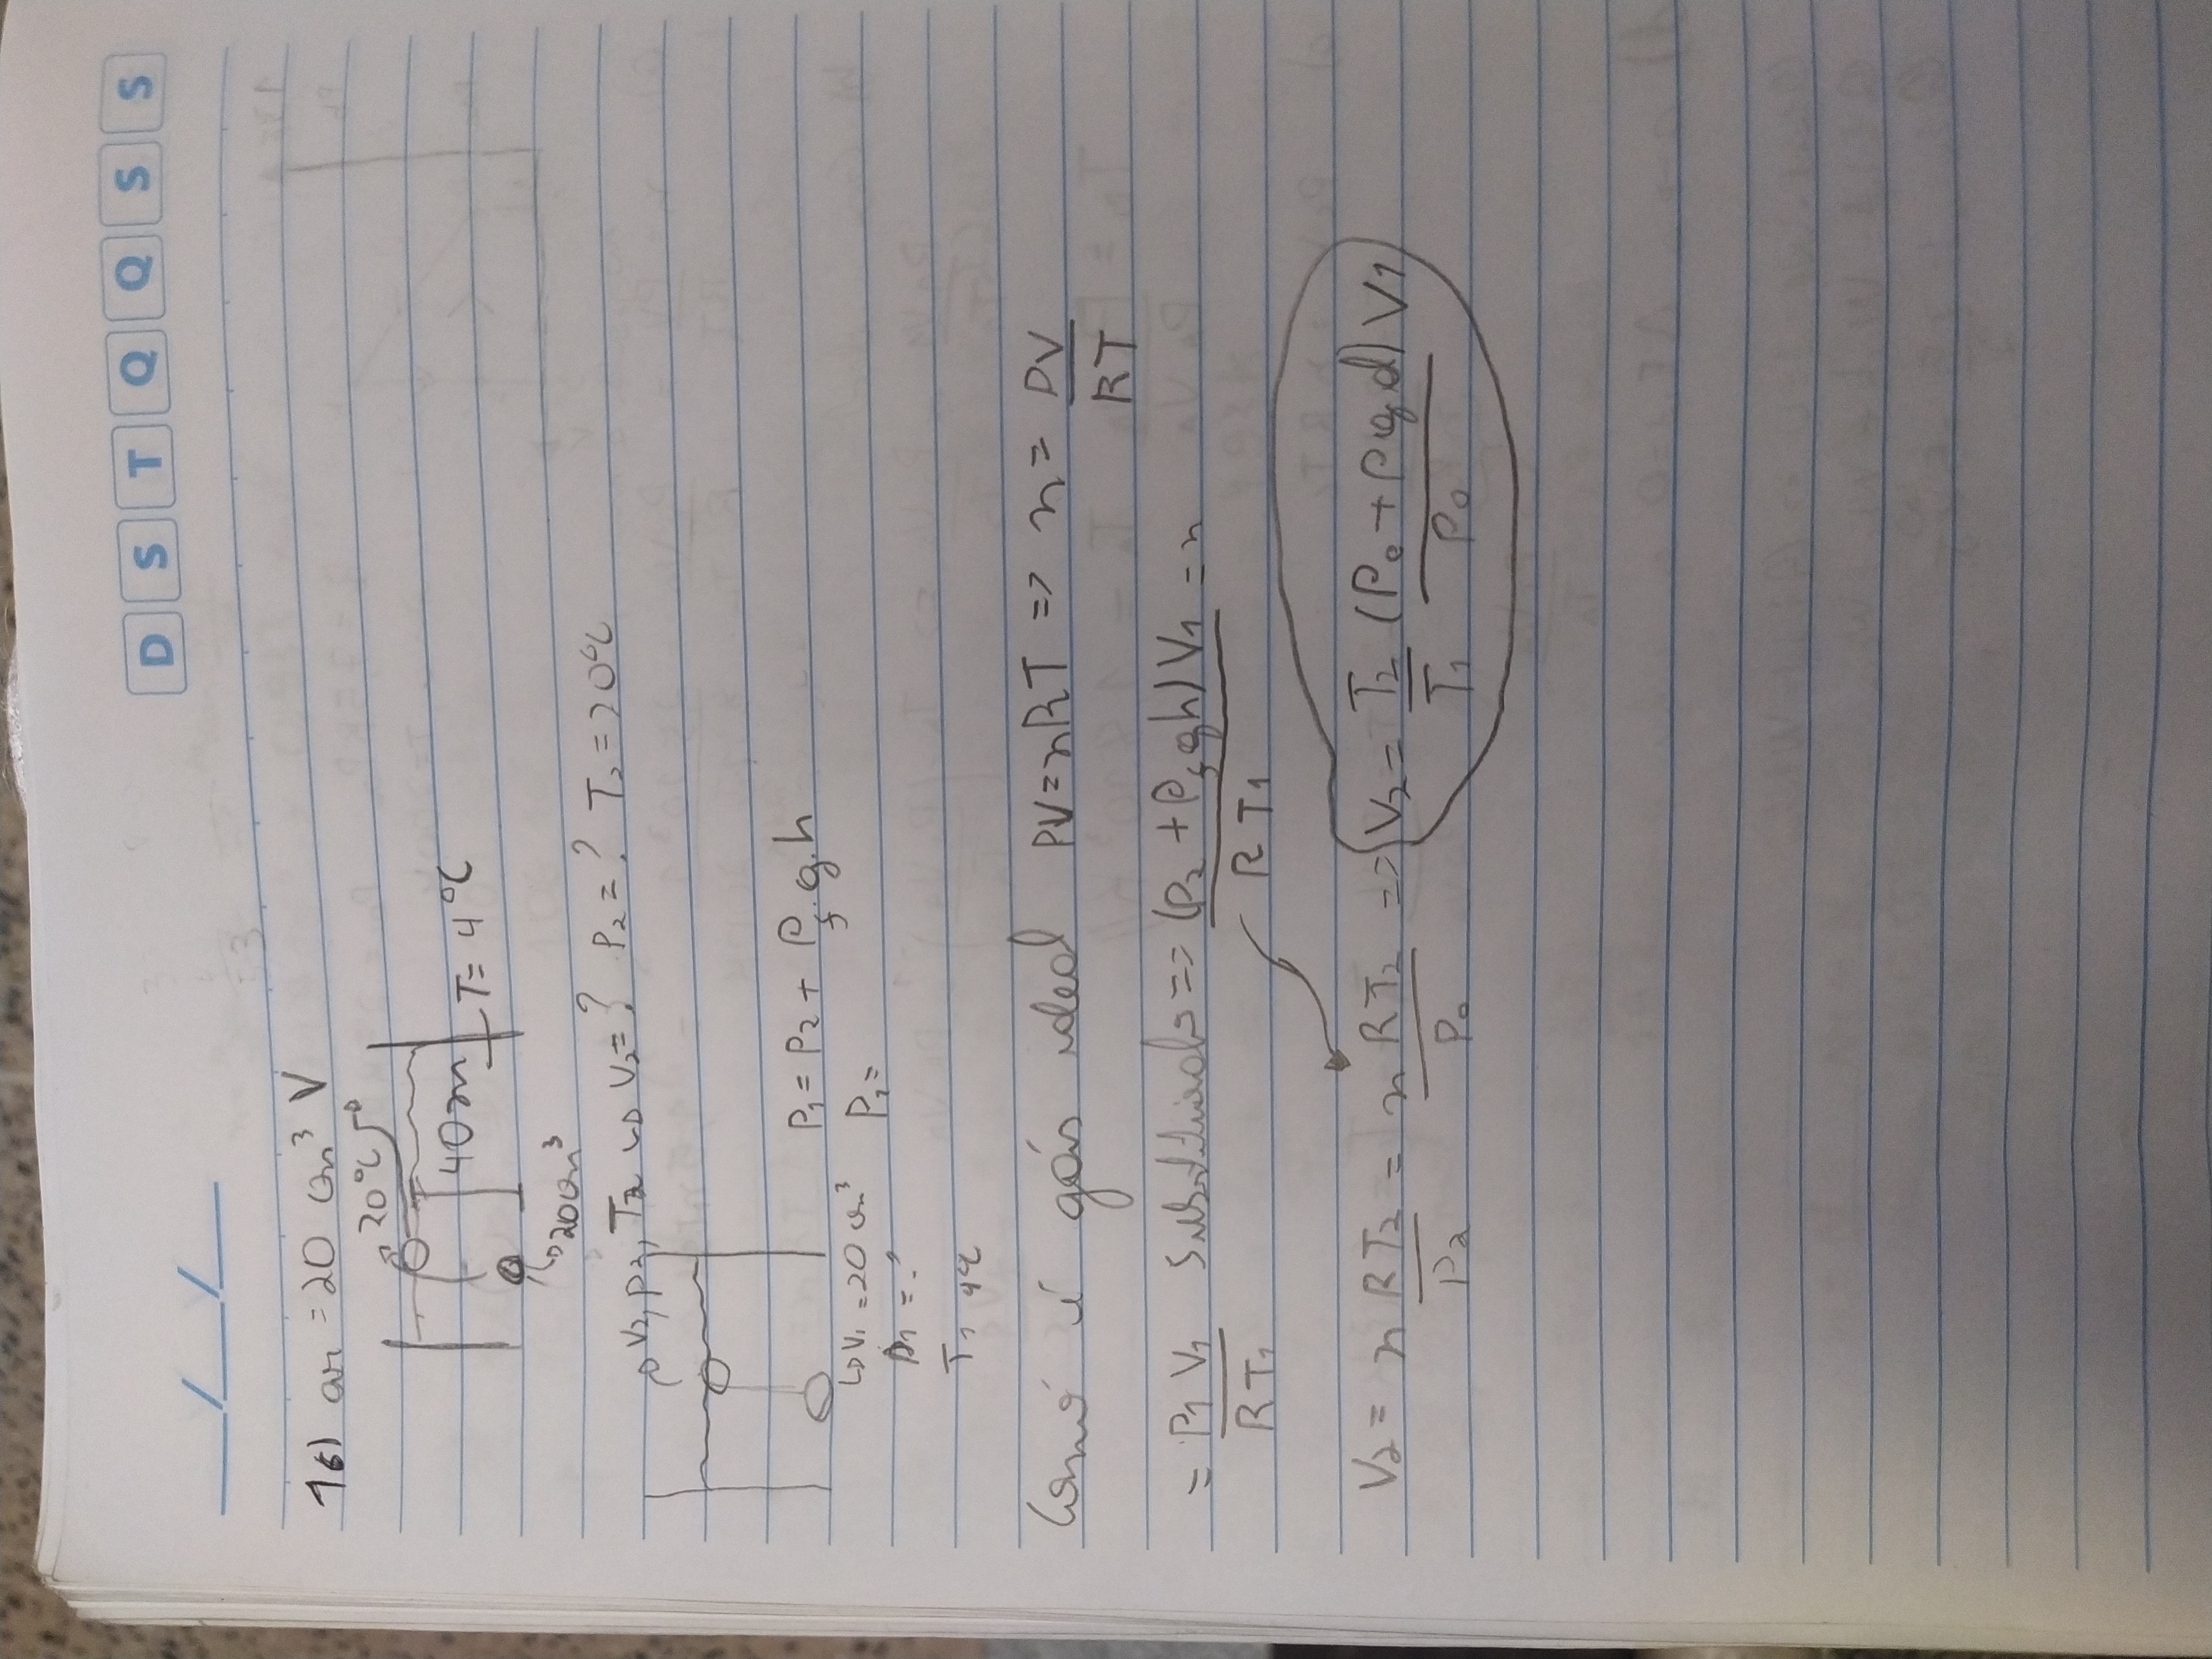 D S T Q Q S S
16) ar = 20 cm³ V
20°C
40m T = 4°C
20cm³
V₂, P₂, T₂ V₂ = ? P₂ = ? T₂ = 20°C
P₁ = P₂ + ρ g.h
V₁ = 20 cm³ P₂ =
P₁ = ?
T₁ 4°C
Como é gás ideal PV = nRT => n = PV/RT
= P₁V₁/RT₁ Substituindo => (P₂ + ρ gh)V₁/RT₁ = n
V₂ = nRT₂/P₂ = nRT₂/P₀ => V₂ = T₂/T₁ (P₀ + ρgd)V₁/P₀